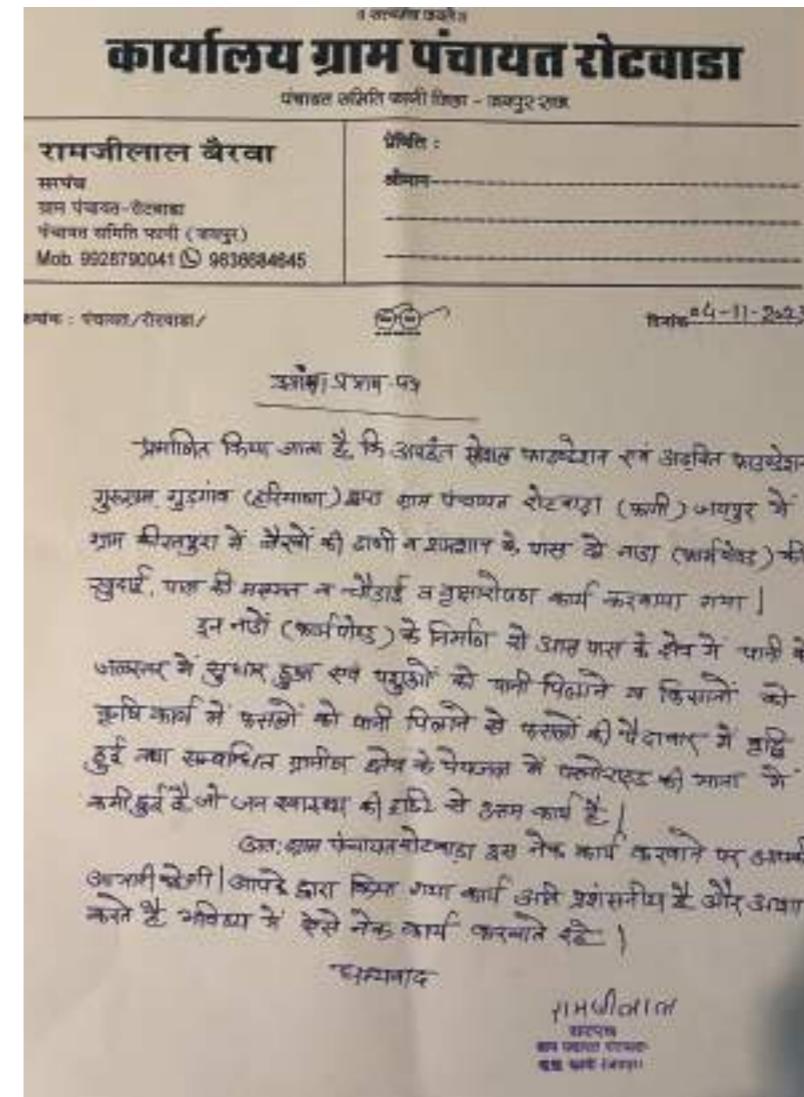 ॥ सत्यमेव जयते ॥
कार्यालय ग्राम पंचायत रोटवाडा
पंचायत समिति फागी जिला - जयपुर राज.
रामजीलाल बैरवा
सरपंच
ग्राम पंचायत-रोटवाडा
पंचायत समिति फागी (जयपुर)
Mob. 9928790041 9636684645
प्रेषिति :
श्रीमान
क्रमांक : पंचायत/रोटवाडा/
दिनांक 04-11-2023
प्रमाण-पत्र
प्रमाणित किया जाता है, कि फाउण्डेशन एवं फाउण्डेशन
गुरुग्राम, गुड़गांव (हरियाणा) द्वारा ग्राम पंचायत रोटवाड़ा (फागी) जयपुर में
ग्राम कीरतपुरा में बैरवों की ढाणी व शमशान के पास दो नाडा (फार्मपोण्ड) की
खुदाई, पाल की मरम्मत व चौड़ाई व वृक्षारोपण कार्य करवाया गया |
इन नाडों (फार्मपोण्ड) के निर्माण से आस पास के क्षेत्र में पानी के
जलस्तर में सुधार हुआ एवं पशुओं को पानी पिलाने व किसानों को
कृषि कार्य में फसलों को पानी पिलाने से फसलों की पैदावार में वृद्धि
हुई तथा सम्बन्धित ग्रामीण क्षेत्र के पेयजल में फ्लोराइड की मात्रा में
कमी हुई है जो जन स्वास्थ्य की दृष्टि से उत्तम कार्य है |
अतः ग्राम पंचायत रोटवाड़ा इस नेक कार्य करवाने पर आपकी
आभारी रहेगी | आपके द्वारा किया गया कार्य अति प्रशंसनीय है और आशा
करते है भविष्य में ऐसे नेक कार्य करवाते रहे |
धन्यवाद
रामजीलाल
सरपंच
ग्राम पंचायत रोटवाडा